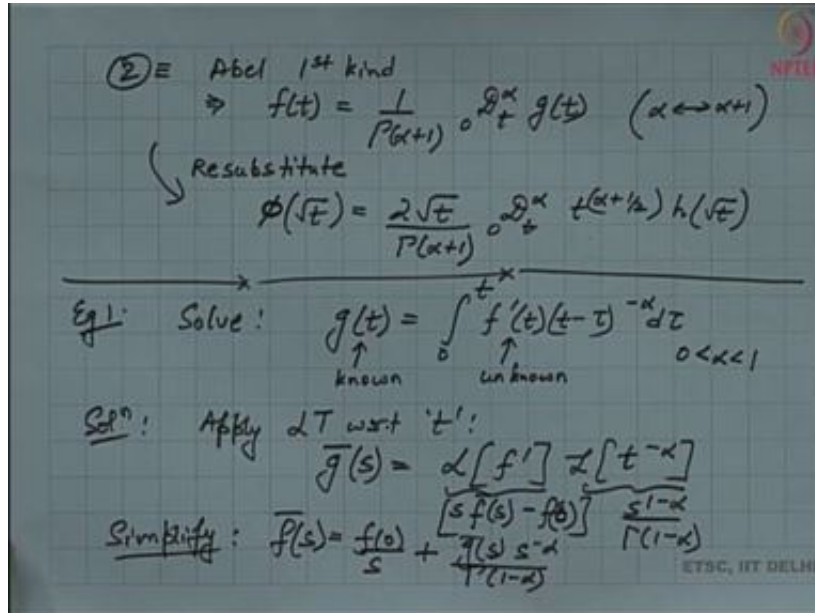 NPTEL
② ≡ Abel 1st kind
⇒ f(t) = 1/Γ(α+1) ₀𝒟ₜ^α g(t) (α ↔ α+1)
Resubstitute
φ(√t) = 2√t/Γ(α+1) ₀𝒟ₜ^α t^(α+1/2) h(√t)
Eg 1. Solve: g(t) = ∫₀^t f'(t)(t-τ)^-α dτ
known unknown 0<α<1
Solⁿ: Apply LT w.r.t 't':
g̅(s) = ℒ[f'] ℒ[t^-α]
[s f̅(s) - f(0)] s^(1-α)/Γ(1-α)
Simplify: f̅(s) = f(0)/s + g̅(s) s^-α/Γ(1-α)
ETSC, IIT DELHI